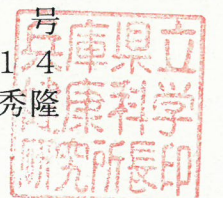 号
1 4
秀隆
兵庫県立
健康科学
研究所長印